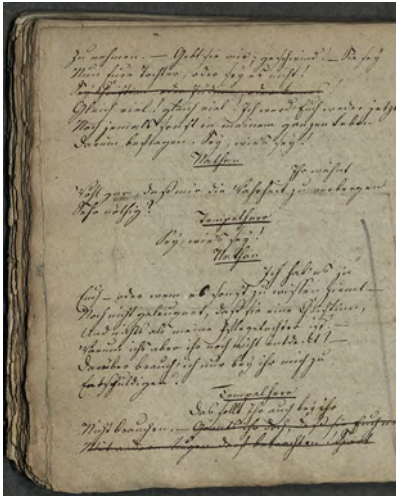 zu nehmen. — Gebt sie mir! geschwind! — Sie sey
Nun Eure Tochter, oder sey es nicht!
Sey Christinn, oder Jüdinn, oder keines!
Gleich viel! gleich viel! Ich werd' Euch weder jetzt
Noch jemals sonst in meinem ganzen Leben
Darum befragen. Sey, wie's sey!
Nathan
Ihr wähnt
Wohl gar, daß mir die Wahrheit zu verbergen
Sehr nöthig?
Tempelherr
Sey, wie's sey!
Nathan
Ich hab' es ja
Euch — oder wem es sonst zu wissen ziemt —
Noch nicht geleugnet, daß sie eine Christinn,
Und nichts als meine Pflegetochter ist. —
Warum ich's aber ihr noch nicht entdeckt? —
Darüber brauch' ich nur bey ihr mich zu
Entschuldigen.
Tempelherr
Das sollt Ihr auch bey ihr
Nicht brauchen. — Gönnt's ihr doch, daß sie Euch nie
Mit andern Augen darf betrachten! Spart